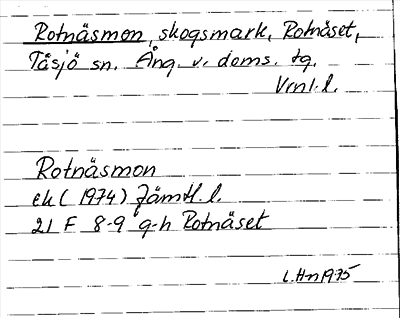 Rotnäsmon, skogsmark, Rotnäset,
Tåsjö sn. Ång. v. doms. tg.
Vrnl. l.
Rotnäsmon
ek (1974) Jämtl. l.
21 F 8-9 g-h Rotnäset
L.Hn 1975